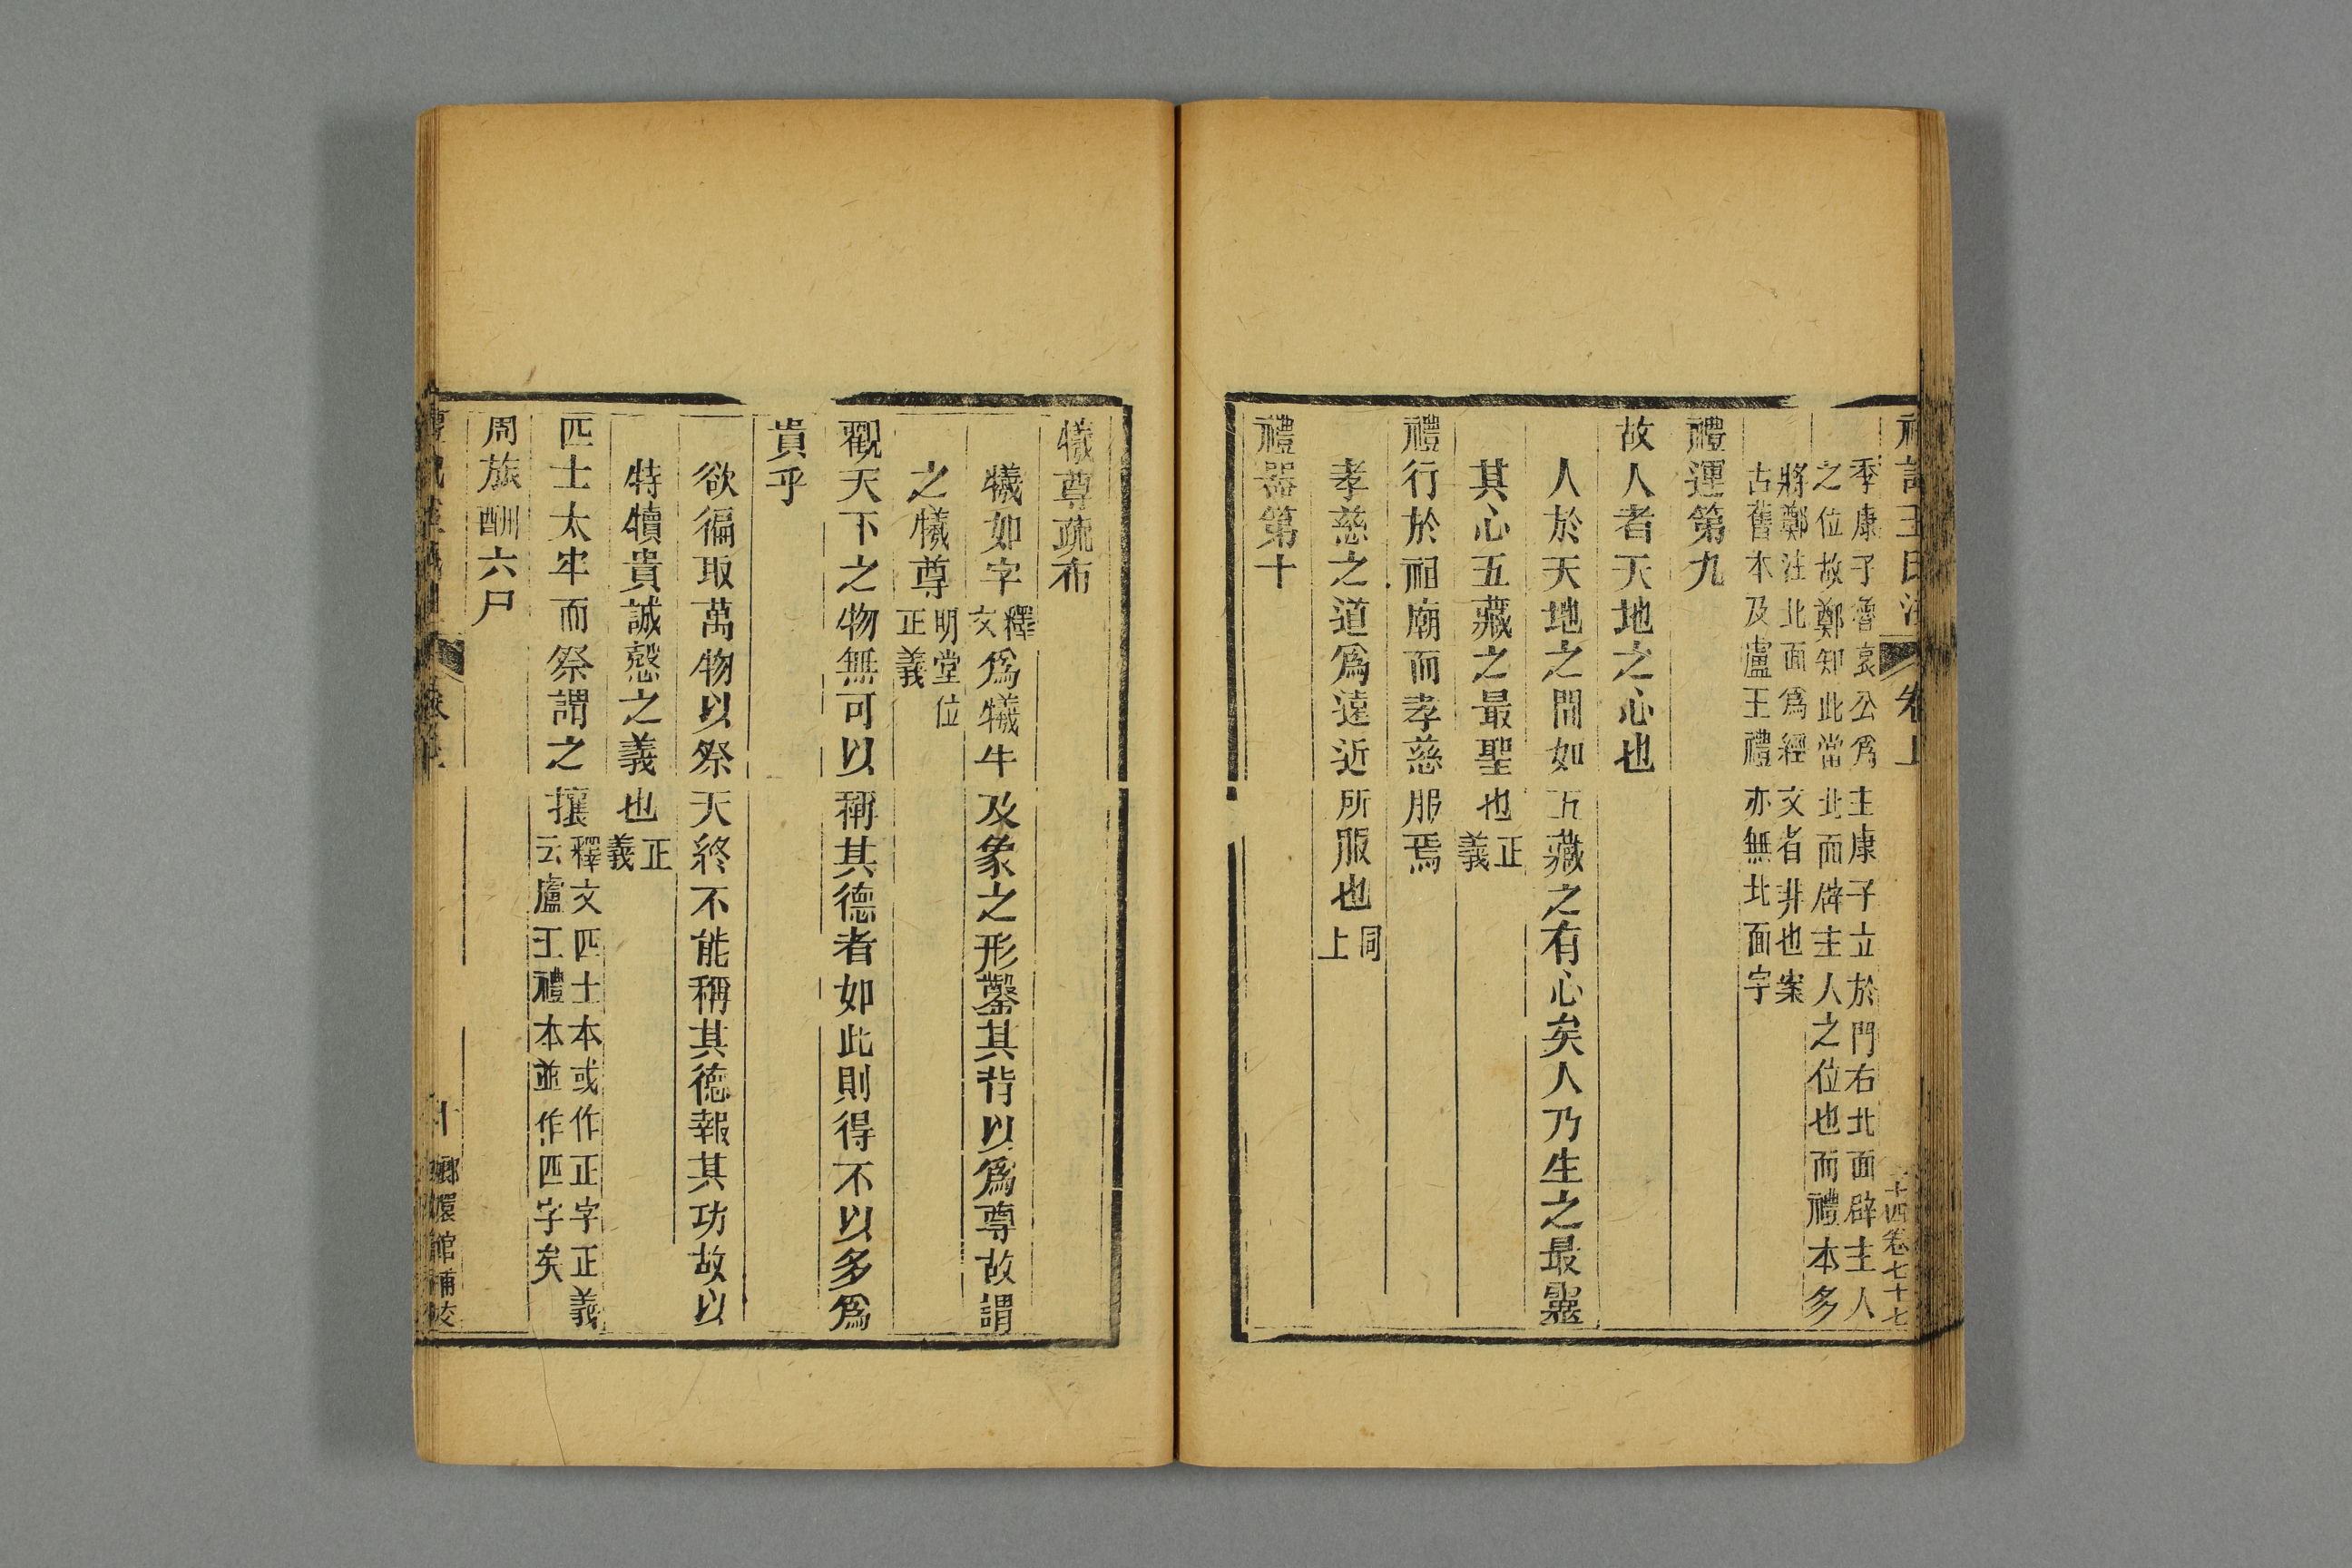 禮記王氏注 卷上 十四卷七十七
季康子魯哀公爲主康子立於門右北面辟主人
之位故鄭知此當北面辟主人之位也而禮本多
將鄭注北面爲經文者非也案
古舊本及盧王禮亦無北面字
禮運第九
故人者天地之心也
人於天地之間如五藏之有心矣人乃生之最靈
其心五藏之最聖也正義
禮行於祖廟而孝慈服焉
孝慈之道爲遠近所服也同上
禮器第十
犧尊疏布
犧如字釋文爲犧牛及象之形鑿其背以爲尊故謂
之犧尊明堂位正義
觀天下之物無可以稱其德者如此則得不以多爲
貴乎
欲徧取萬物以祭天終不能稱其德報其功故以
特犢貴誠慤之義也正義
匹士太牢而祭謂之攘釋文匹士本或作正字正義
云盧王禮本並作匹字矣
周旅酬六尸
嫏嬛館補校